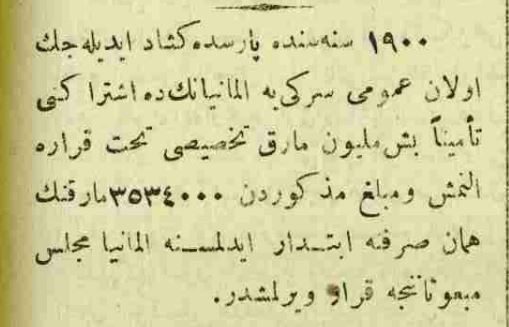 ١٩٠٠ سنه‌سنده پارسده كشاد ايديله جك
اولان عمومى سركى‌يه المانيانك ده اشترا كنى
تأميناً بش مليون مارق تخصيصى تحت قراره
النمش ومبلغ مذكوردن ٣٥٣٤٠٠٠ مارقنك
همان صرفنه ابتدار ايدلمسنه المانيا مجلس
مبعوثاننجه قرار ويرلمشدر.